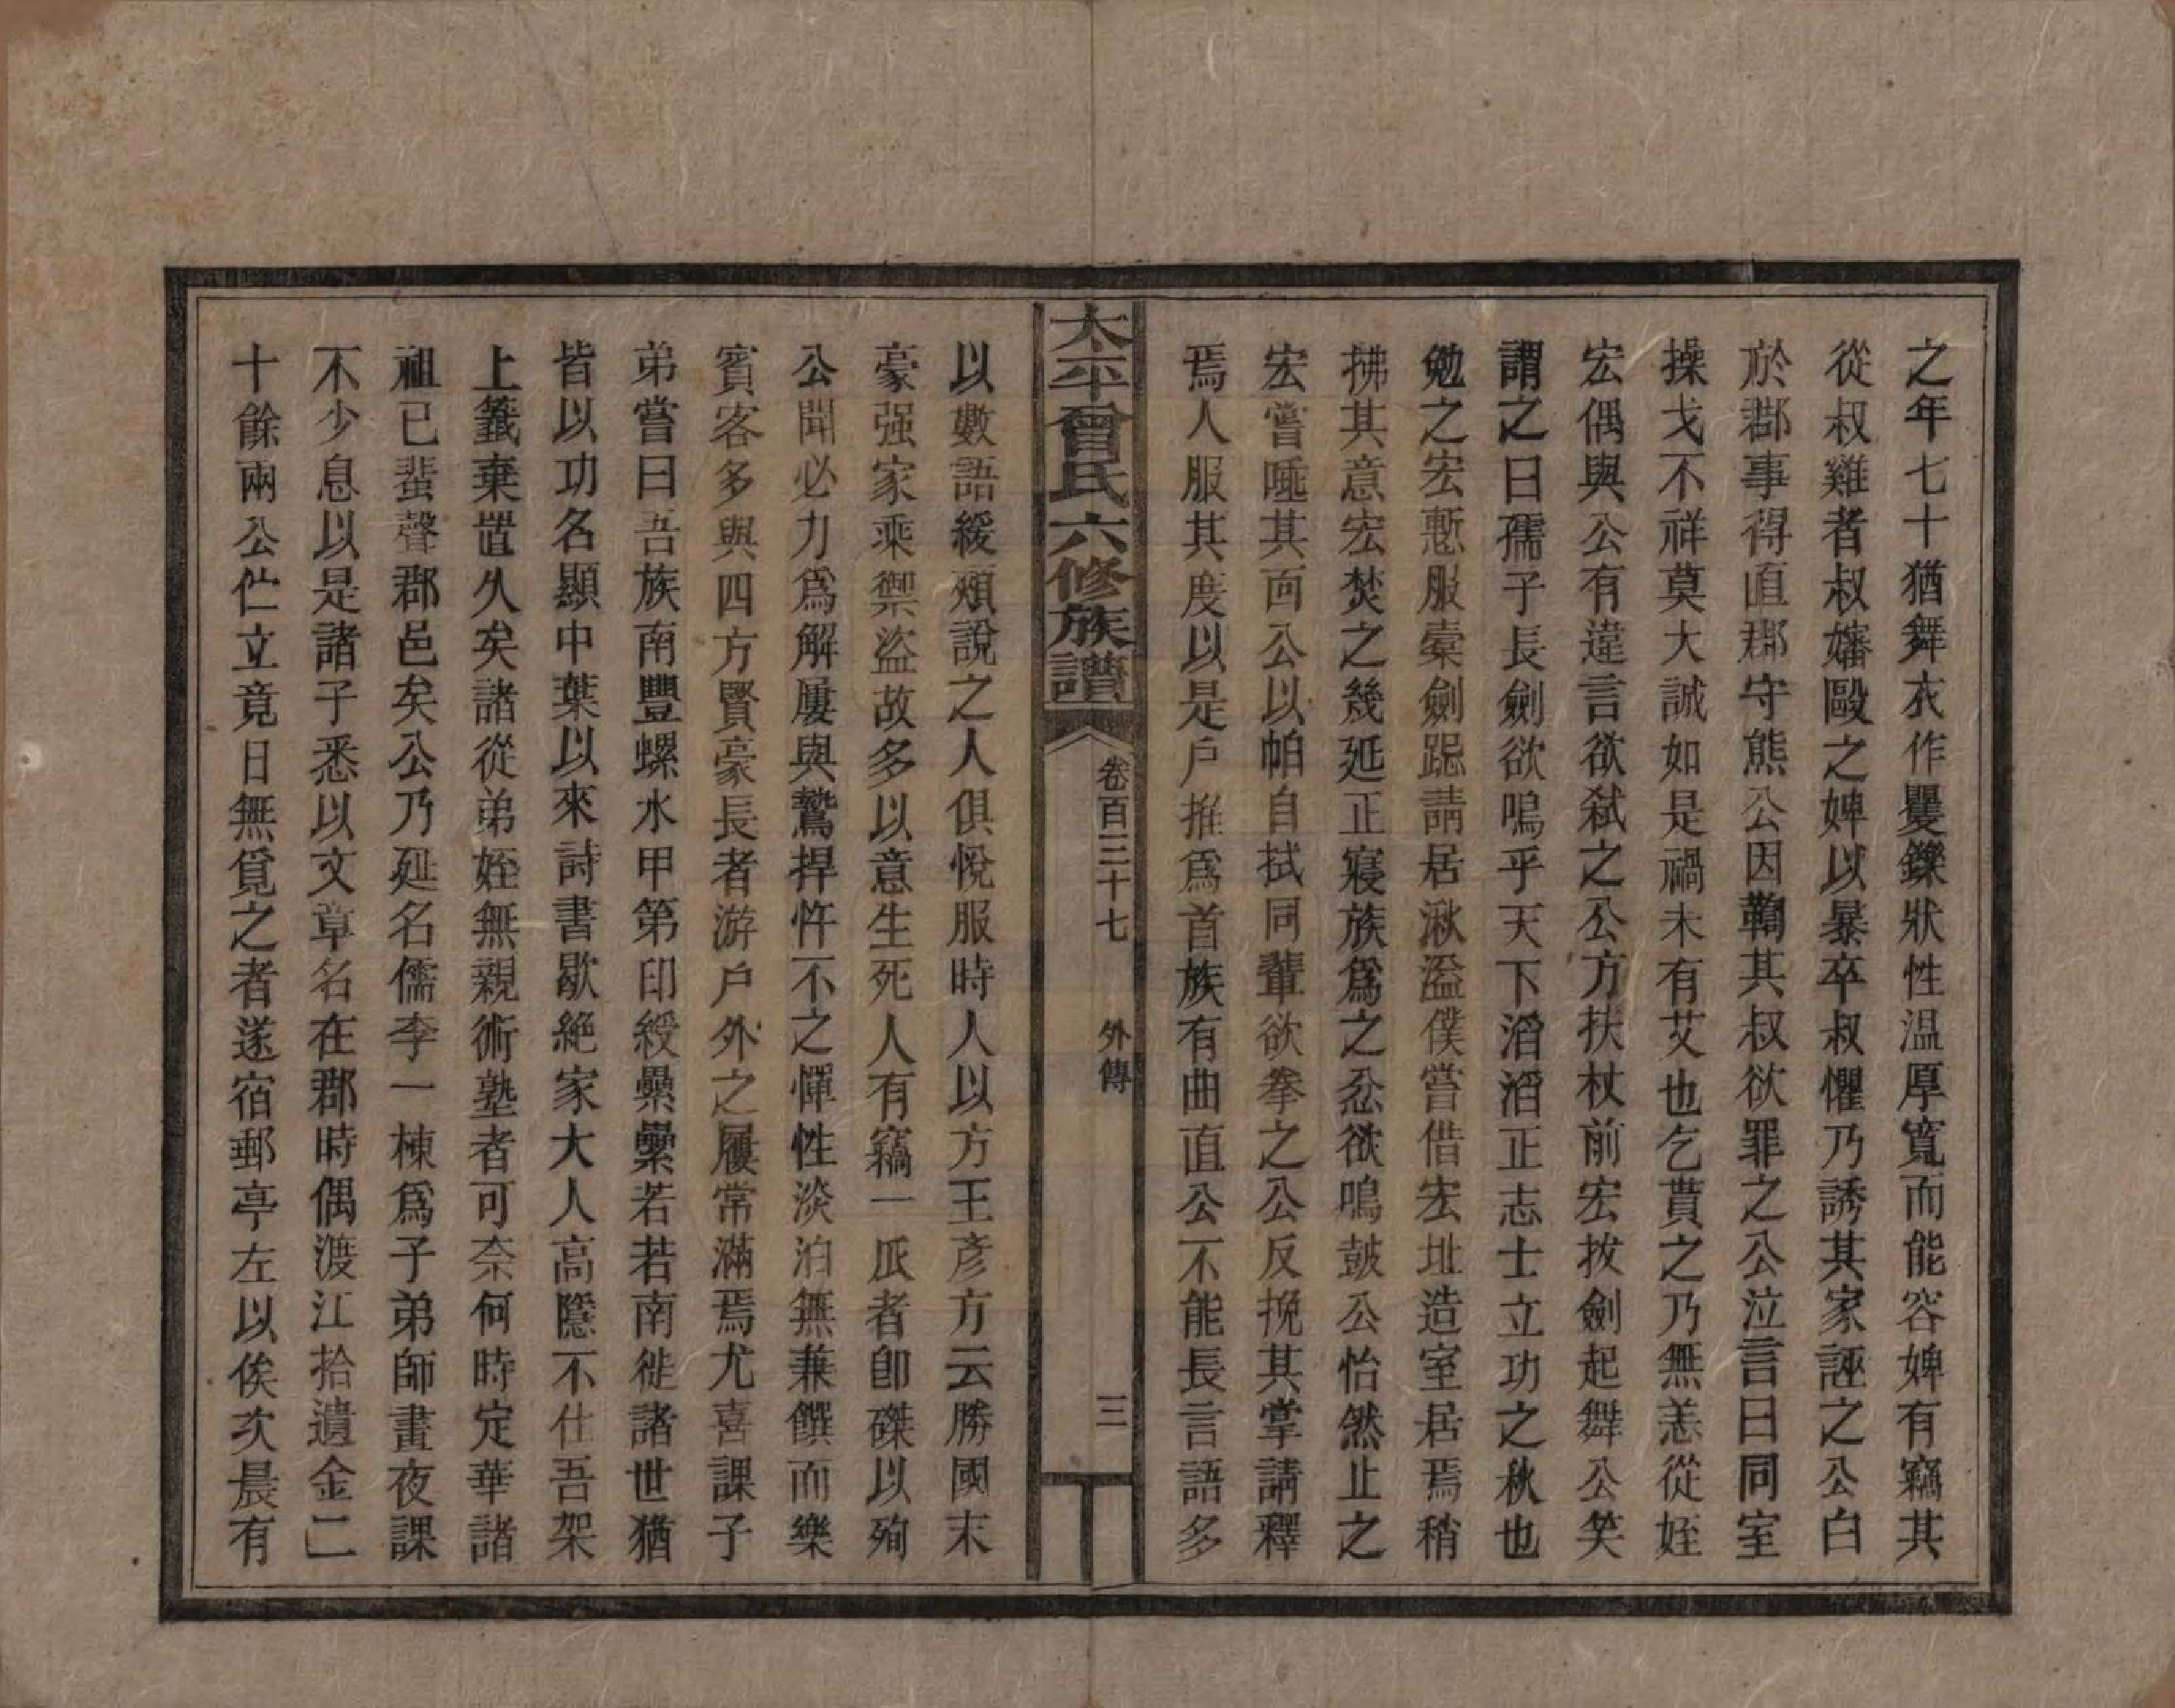 之年七十猶舞衣作矍鑠狀性温厚寬而能容婢有竊其
從叔雞者叔嬸毆之婢以暴卒叔懼乃誘其家誣之公白
於郡事得直郡守熊公因鞫其叔欲罪之公泣言曰同室
操戈不祥莫大誠如是禍未有艾也乞貰之乃無恙從姪
宏偶與公有違言欲弒之公方扶杖前宏拔劍起舞公笑
謂之曰孺子長劍欲鳴乎天下滔滔正志士立功之秋也
勉之宏慙服橐劍跽請居湫溢僕嘗借宏址造室居焉稍
拂其意宏焚之幾延正寢族爲之忿欲鳴鼓公怡然止之
宏嘗唾其面公以帕自拭同輩欲拳之公反挽其掌請釋
焉人服其度以是戶推爲首族有曲直公不能長言語多
太平曾氏六修族譜
卷百三十七
外傳
三
以數語緩頰說之人俱悅服時人以方王彥方云勝國末
豪强家乘禦盜故多以意生死人有竊一瓜者卽磔以殉
公聞必力爲解屢與鷙捍忤不之憚性淡泊無兼饌而樂
賓客多與四方賢豪長者游戶外之屨常滿焉尤喜課子
弟嘗曰吾族南豐螺水甲第印綬纍纍若若南徙諸世猶
皆以功名顯中葉以來詩書歇絶家大人高隱不仕吾架
上籤棄置久矣諸從弟姪無親術塾者可奈何時定華諸
祖已蜚聲郡邑矣公乃延名儒李一棟爲子弟師晝夜課
不少息以是諸子悉以文章名在郡時偶渡江拾遺金二
十餘兩公伫立竟日無覓之者遂宿郵亭左以俟次晨有